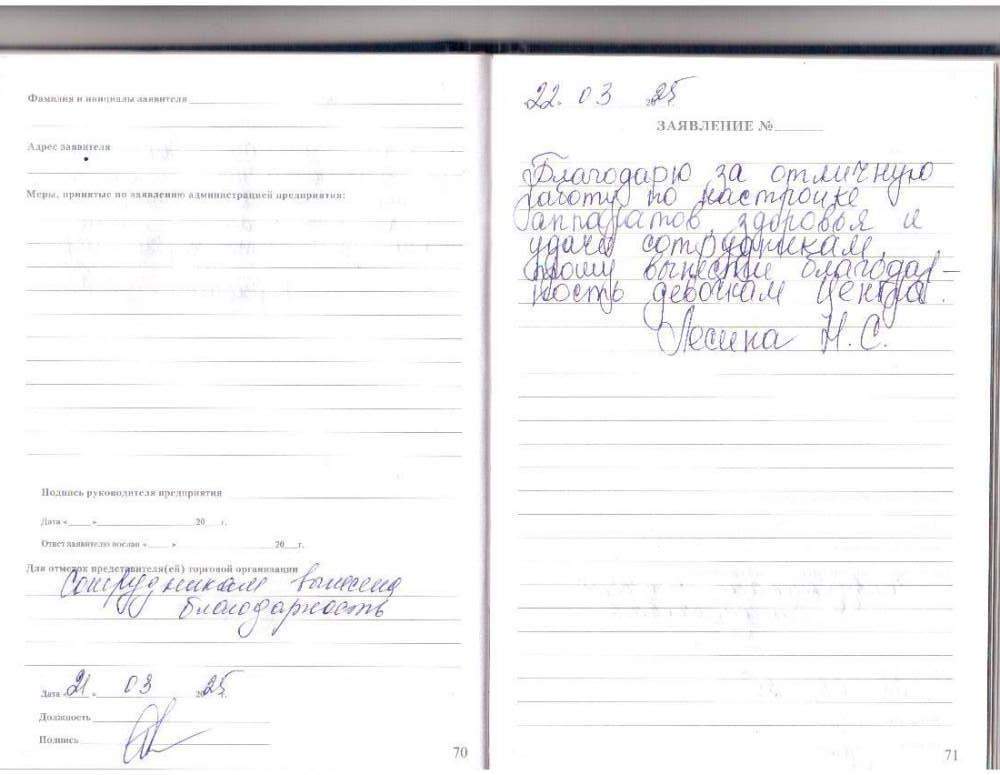 Фамилия и инициалы заявителя
Адрес заявителя
Меры, принятые по заявлению администрацией предприятия:
Подпись руководителя предприятия
Дата « » 20 г.
Ответ заявителю послан « » 20 г.
Для отметок представителя(ей) торговой организации
Сотрудникам вынесена
благодарность
Дата « 21 » 03 2025 г.
Должность
Подпись
70
22. 03 2025 г.
ЗАЯВЛЕНИЕ №
Благодарю за отличную
работу по настройке
аппаратов, здоровья и
удачи сотрудникам,
прошу вынести благодар-
ность девочкам Центра.
Лесина Н.С.
71